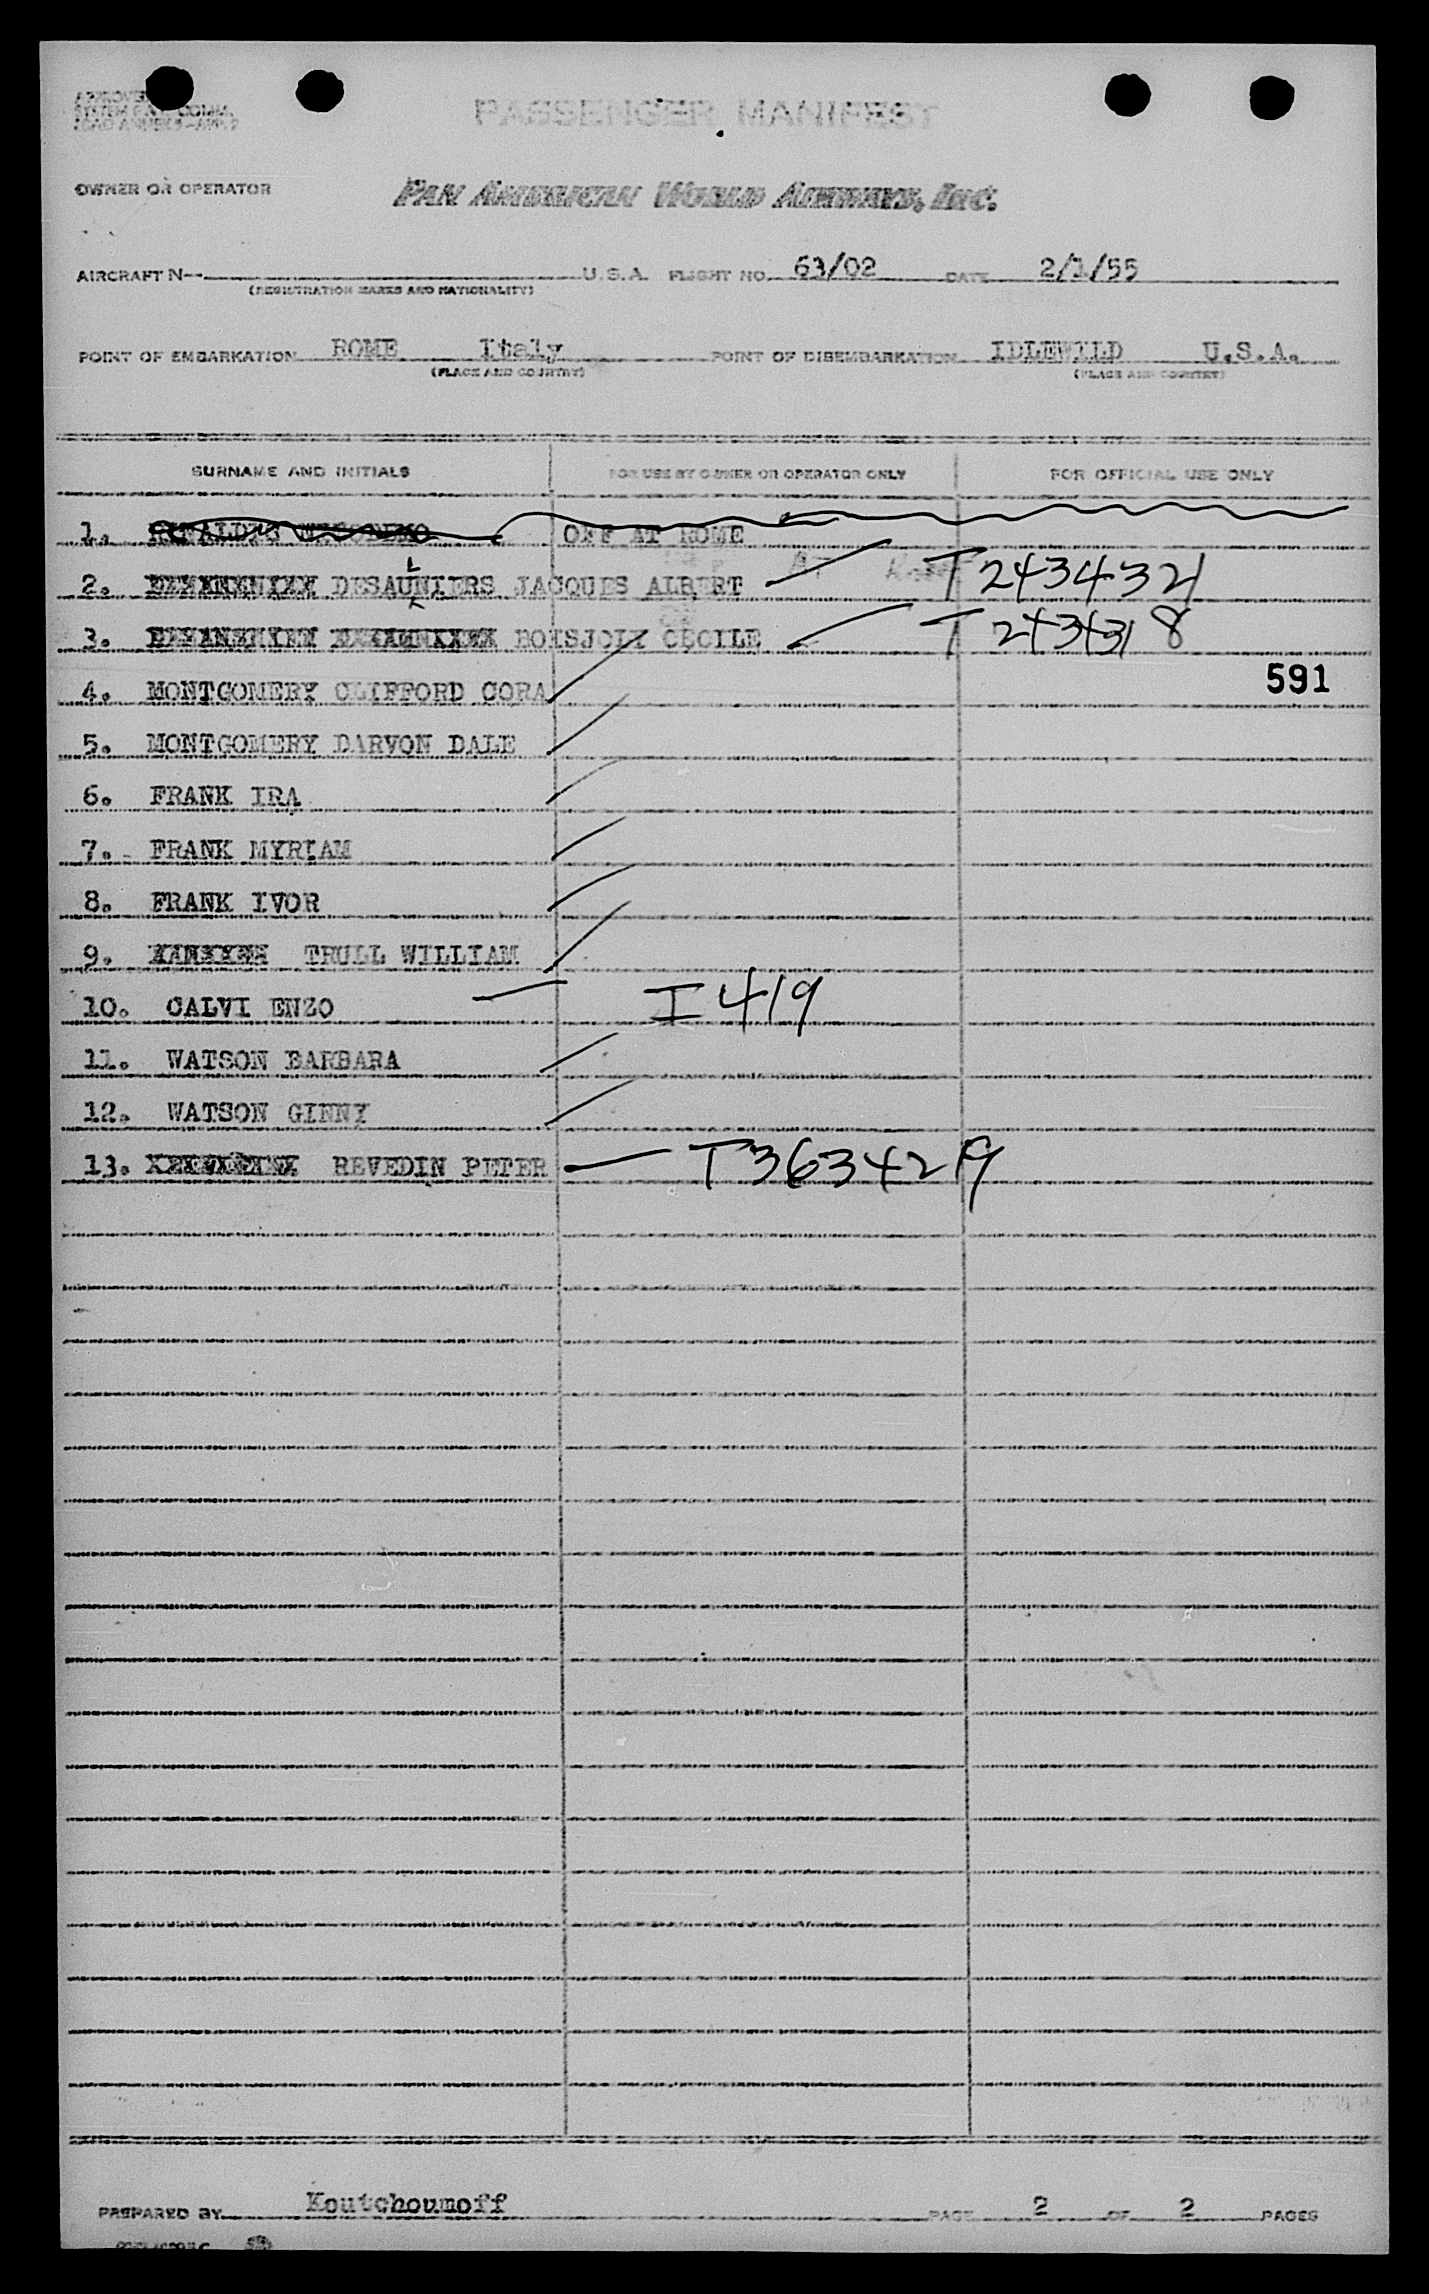 PASSENGER MANIFEST
OWNER OR OPERATOR PAN AMERICAN WORLD AIRWAYS, INC.
AIRCRAFT N- U.S.A. FLIGHT NO. 63/02 DATE 2/1/55
(REGISTRATION MARKS AND NATIONALITY)
POINT OF EMBARKATION ROME Italy POINT OF DISEMBARKATION IDLEWILD U.S.A.
(PLACE AND COUNTRY) (PLACE AND COUNTRY)
SURNAME AND INITIALS FOR USE BY OWNER OR OPERATOR ONLY FOR OFFICIAL USE ONLY
1. OFF AT ROME
2. DESAULNIERS JACQUES ALBERT T 2434321
3. BOISJOLY CECILE T 2434318
591
4. MONTGOMERY CLIFFORD CORA
5. MONTGOMERY DARVON DALE
6. FRANK IRA
7. FRANK MYRIAM
8. FRANK IVOR
9. TRULL WILLIAM
10. CALVI ENZO I 419
11. WATSON BARBARA
12. WATSON GINNY
13. REVEDIN PETER T3634219
PREPARED BY Koutchoumoff PAGE 2 OF 2 PAGES